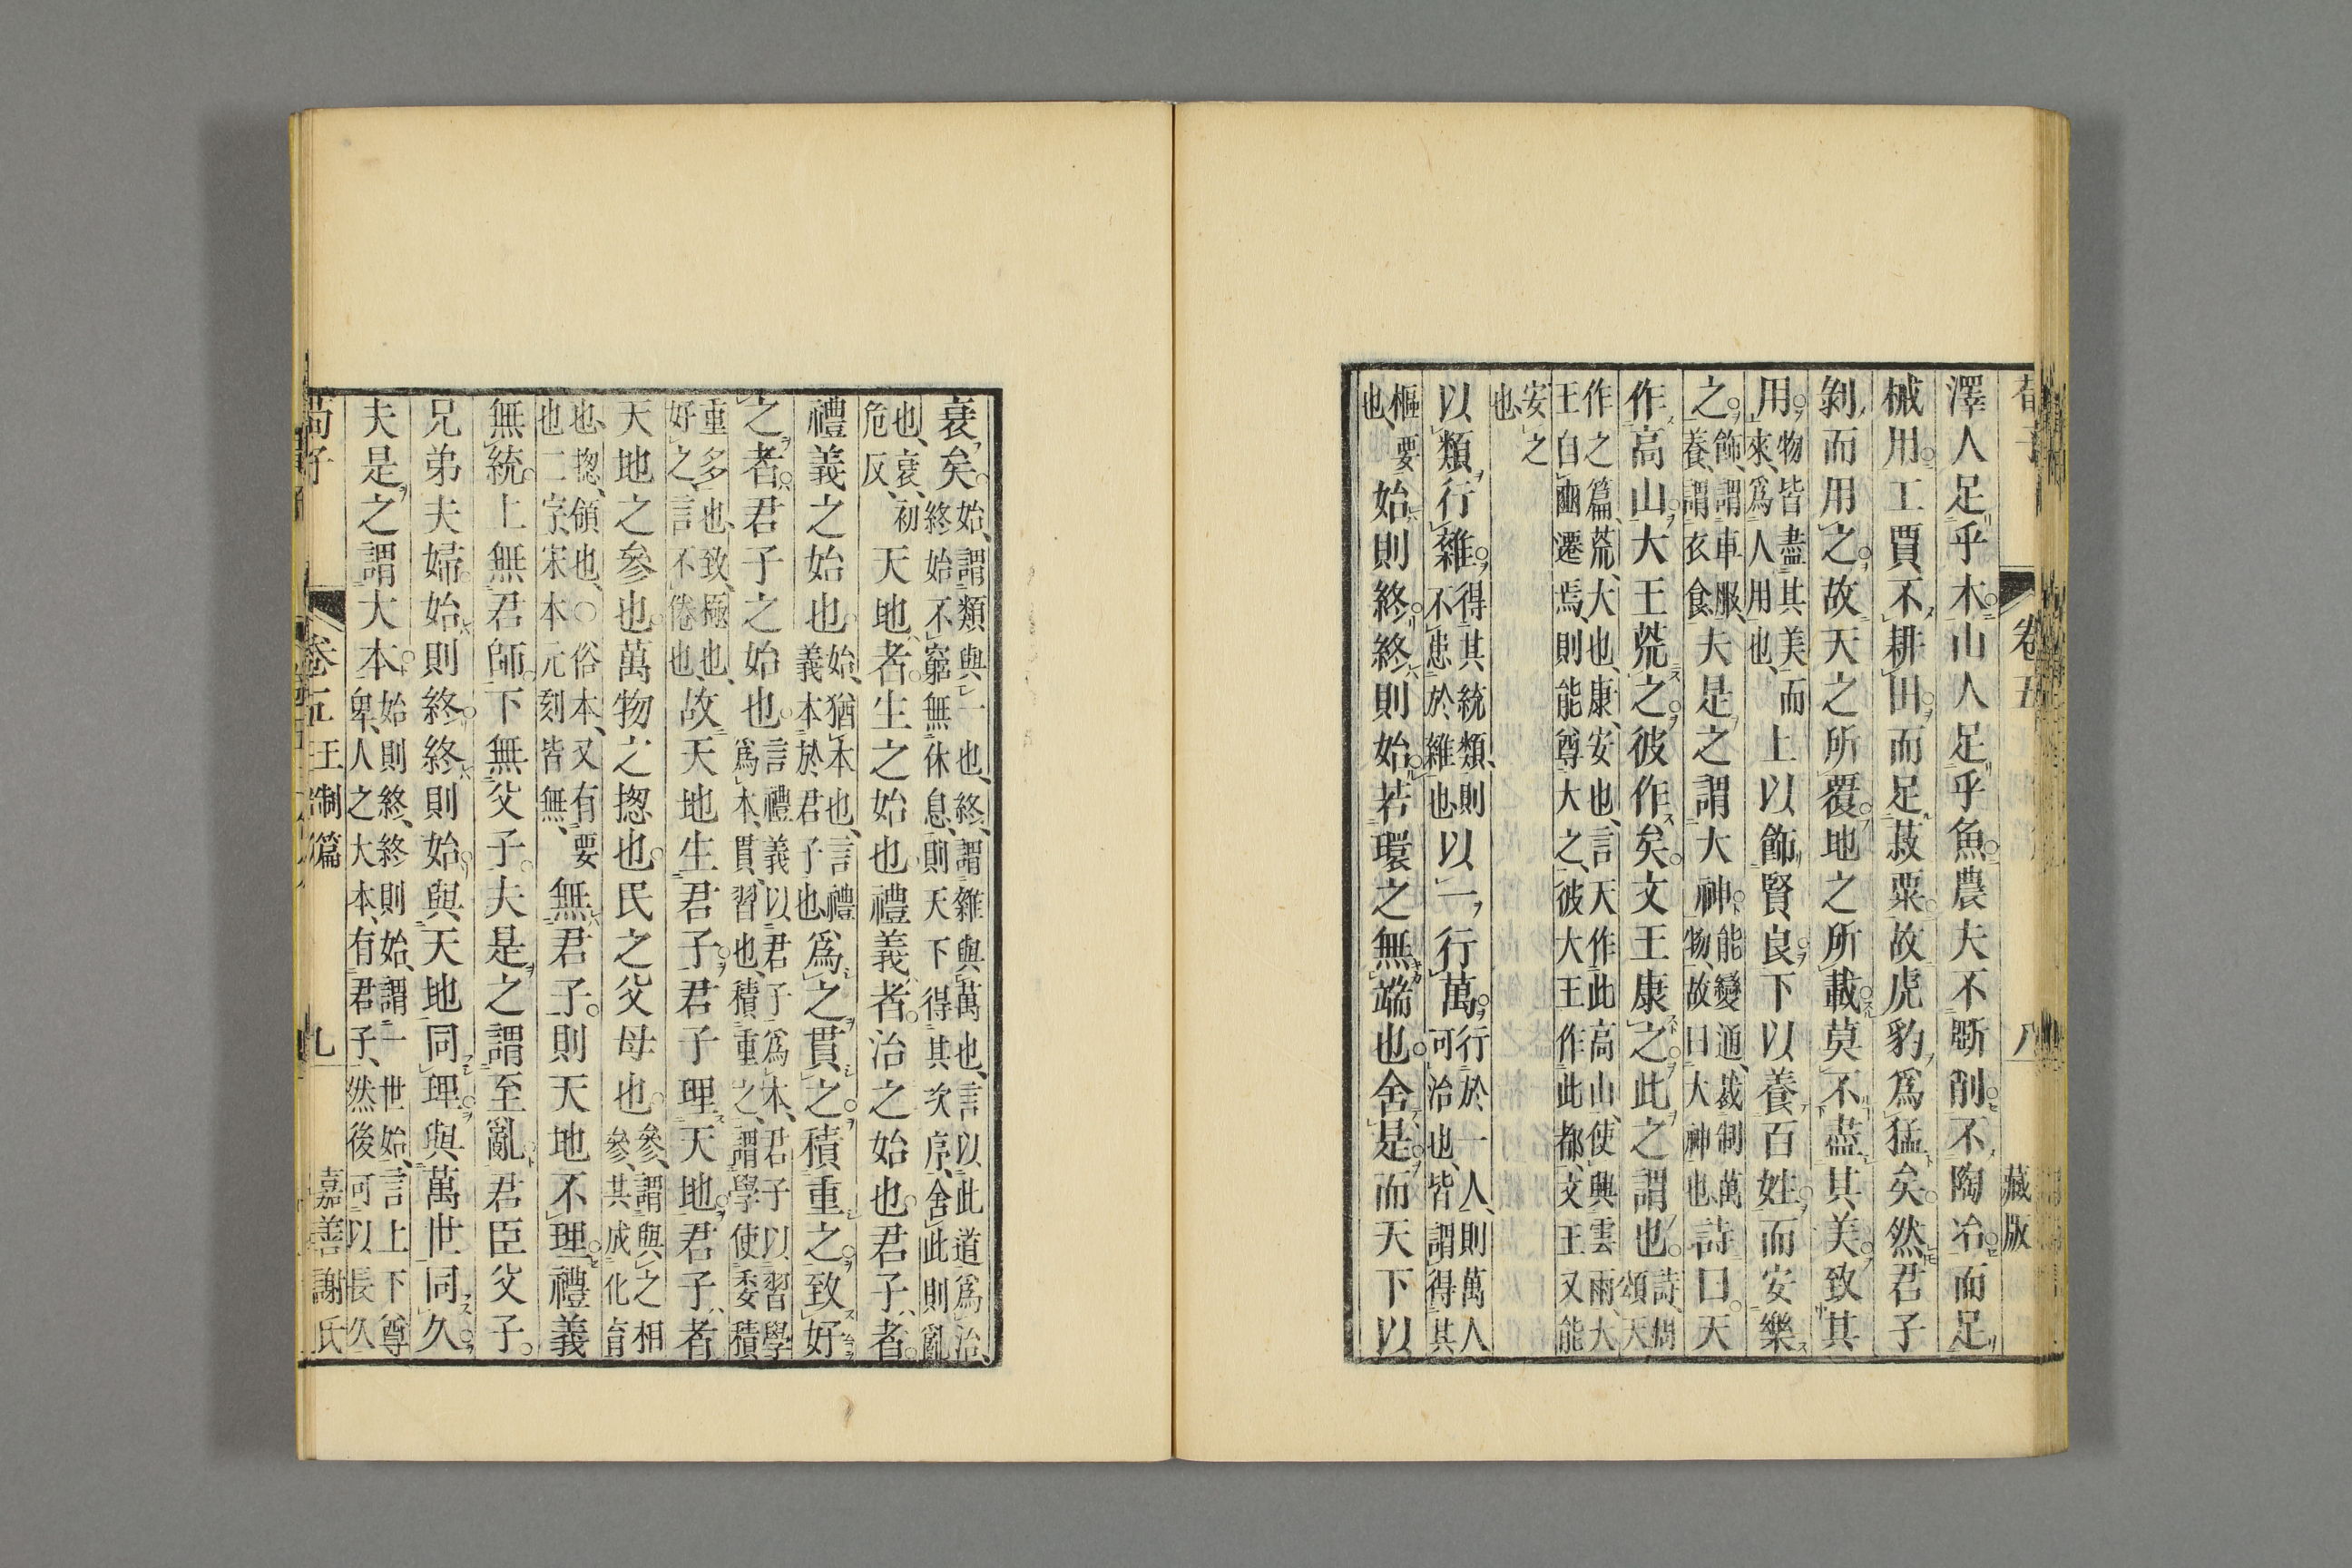 荀子 卷五 八 藏版
澤人足乎木山人足乎魚農夫不斲削不陶冶而足
械用工賈不耕田而足菽粟故虎豹爲猛矣然君子
剝而用之故天之所覆地之所載莫不盡其美致其
用物皆盡其美而
來爲人用也、上以飾賢良下以養百姓而安樂
之飾、謂車服、
養、謂衣食夫是之謂大神能變通裁制萬
物、故曰大神也詩曰天
作高山大王荒之彼作矣文王康之此之謂也詩、周
頌天
作之篇、荒、大也、康、安也、言天作此高山、使興雲雨、大
王自豳遷焉、則能尊大之、彼大王作此都、文王又能
安之
也、
以類行雜得其統類、則
不患於雜也以一行萬行於一人、則萬人
可治也、皆謂得其
樞要
也、始則終終則始若環之無端也舍是而天下以
衰矣始、謂類與一也、終、謂雜與萬也、言以此道爲治、
終始不窮無休息、則天下得其次序、舍此則亂
也、衰、初
危反、天地者生之始也禮義者治之始也君子者
禮義之始也始、猶本也、言禮
義本於君子也、爲之貫之積重之致好
之者君子之始也言禮義以君子爲本、君子以習學
爲本、貫、習也、積重之、謂學使委積
重多也、致、極也、
好之、言不倦也、故天地生君子君子理天地君子者
天地之參也萬物之揔也民之父母也參、謂與之相
參、共成化育
也、揔、領也、○俗本、又有要
也二字、宋本元刻皆無、無君子則天地不理禮義
無統上無君師下無父子夫是之謂至亂君臣父子
兄弟夫婦始則終終則始與天地同理與萬世同久
夫是之謂大本始則終、終則始、謂一世始、言上下尊
卑、人之大本、有君子、然後可以長久
荀子 卷五 王制篇 九 嘉善謝氏